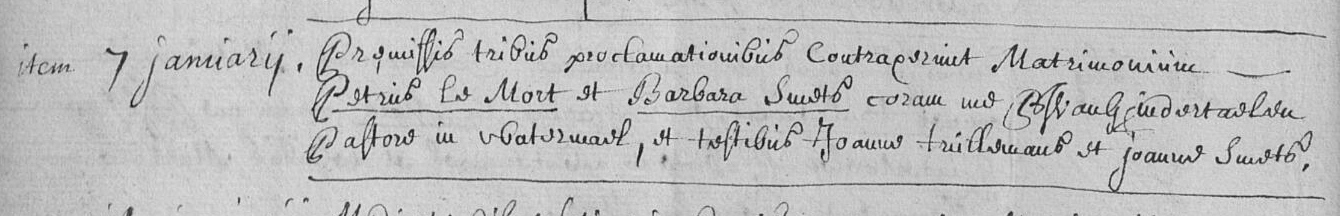 item 7 januarij. Premissis tribus proclamationibus Contraxerunt Matrimonium
Petrus Le Mort et Barbara Smets coram me van Gindertaelen
Pastore in Watermael, et testibus Joanne truillemans et joanne Smets.